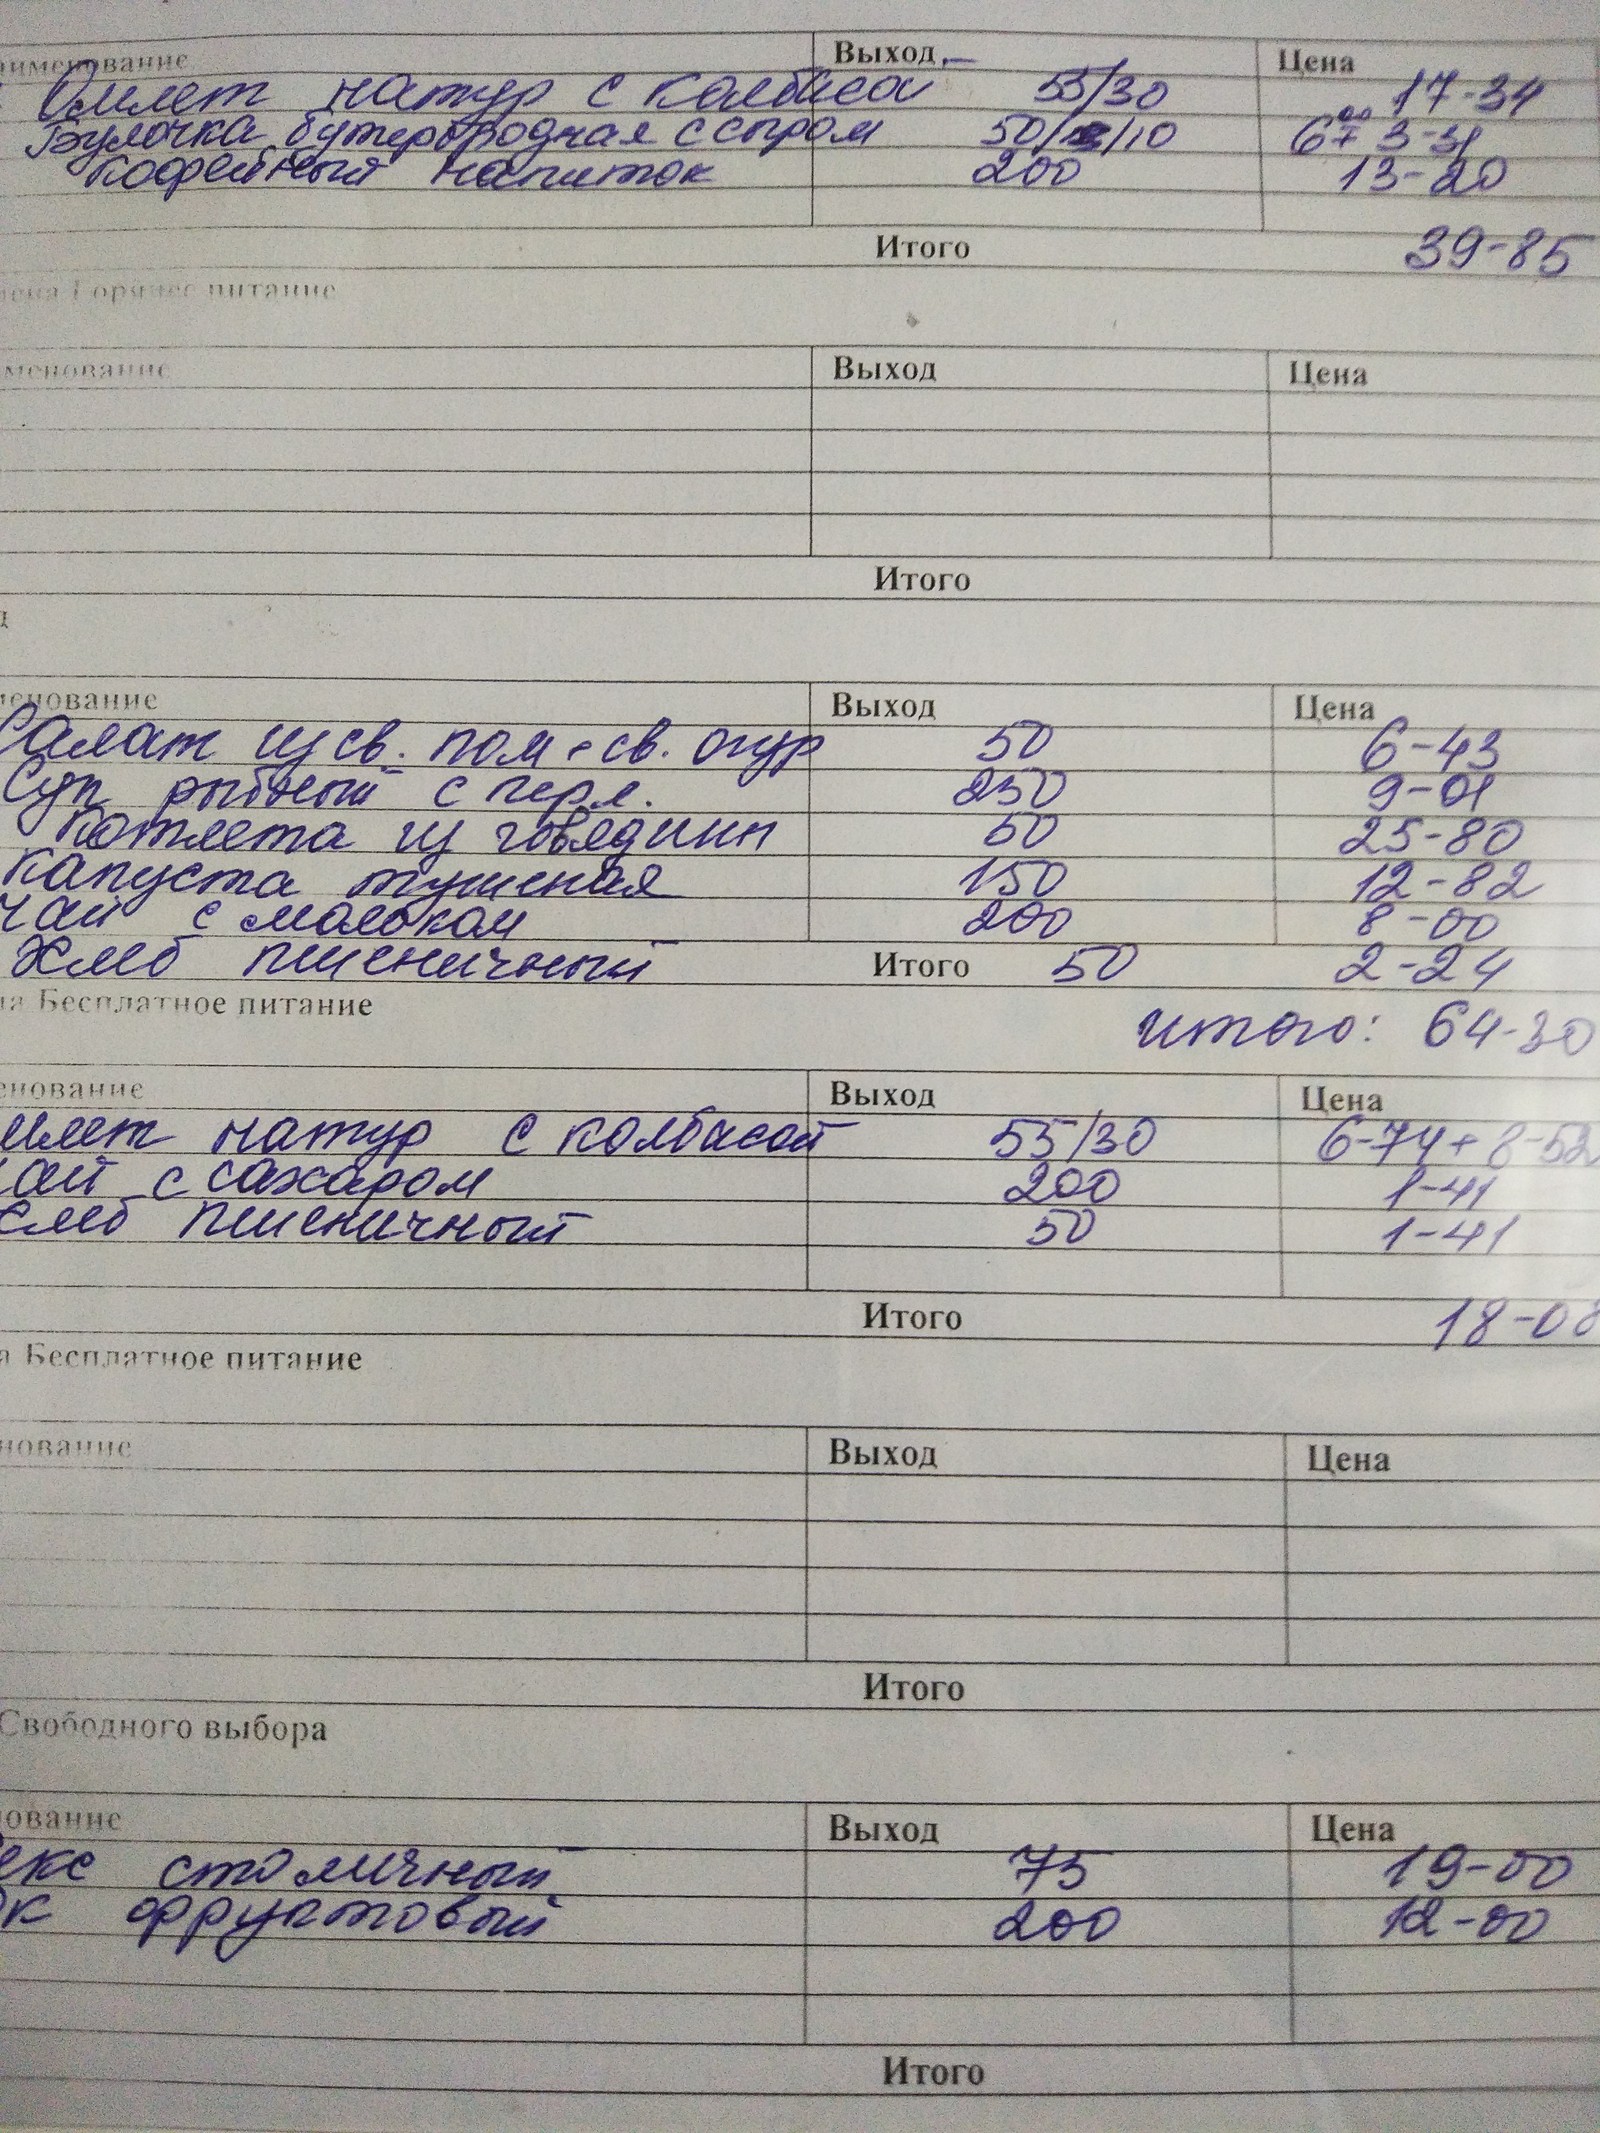 аименование Выход Цена
Омлет натур с колбаса 55/30 17-34
Булочка бутербродная с сыром 50/10 6 00 + 3-31
Кофейный напиток 200 13-20
Итого 39-85
мена Горячее питание
менование Выход Цена
Итого
д
менование Выход Цена
Салат из св. пом + св. огур 50 6-43
Суп рыбный с перл. 250 9-01
Котлета из говядин 50 25-80
Капуста тушеная 150 12-82
чай с молоком 200 8-00
Хлеб пшеничный Итого 50 2-24
на Бесплатное питание
итого: 64-30
енование Выход Цена
млет натур с колбасой 55/30 6-74+8-52
ай с сахаром 200 1-41
леб пшеничный 50 1-41
Итого 18-08
а Бесплатное питание
нование Выход Цена
Итого
Свободного выбора
ование Выход Цена
екс столичный 75 19-00
ок фруктовый 200 12-00
Итого